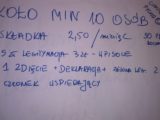 KOŁO MIN 10 OSÓB
SKŁADKA 2,50 / miesiąc
LEGITYMACJA 3 ZŁ - WPISOWE
1 ZDJĘCIE + DEKLARACJA +
CZŁONEK WSPIERAJĄCY